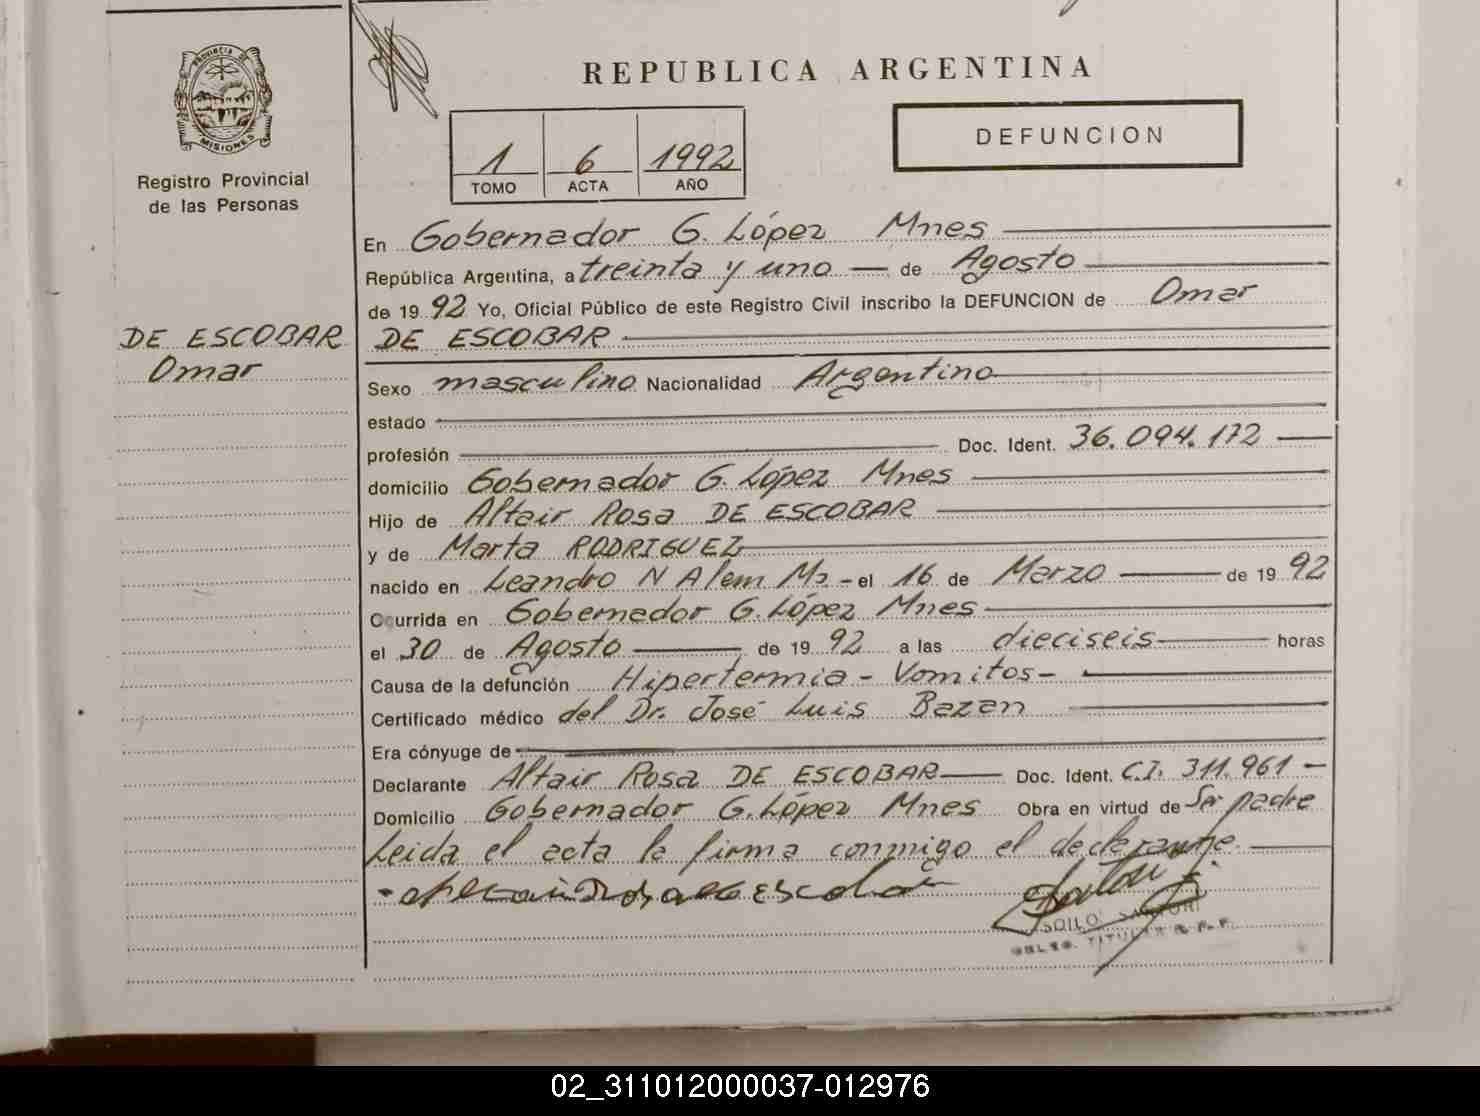 REPUBLICA ARGENTINA
PROVINCIA DE
MISIONES
Registro Provincial
de las Personas
1 6 1992
TOMO ACTA AÑO
DEFUNCION
En Gobernador G. López Mnes
República Argentina, a treinta y uno de Agosto
de 19 92 Yo, Oficial Público de este Registro Civil inscribo la DEFUNCION de Omar
DE ESCOBAR
DE ESCOBAR
Omar
Sexo masculino Nacionalidad Argentino
estado
profesión Doc. Ident. 36.094.172
domicilio Gobernador G. López Mnes
Hijo de Altair Rosa DE ESCOBAR
y de Marta RODRIGUEZ
nacido en Leandro N Alem Ms - el 16 de Marzo de 19 92
Ocurrida en Gobernador G. López Mnes
el 30 de Agosto de 19 92 a las dieciseis horas
Causa de la defunción Hipertermia - Vomitos -
Certificado médico del Dr. José Luis Bazan
Era cónyuge de
Declarante Altair Rosa DE ESCOBAR Doc. Ident. C.I. 311.961 -
Domicilio Gobernador G. López Mnes Obra en virtud de Ser padre
Leida el acta la firma conmigo el declarante.
SARTORI
TITULAR R.P.P.
02_311012000037-012976